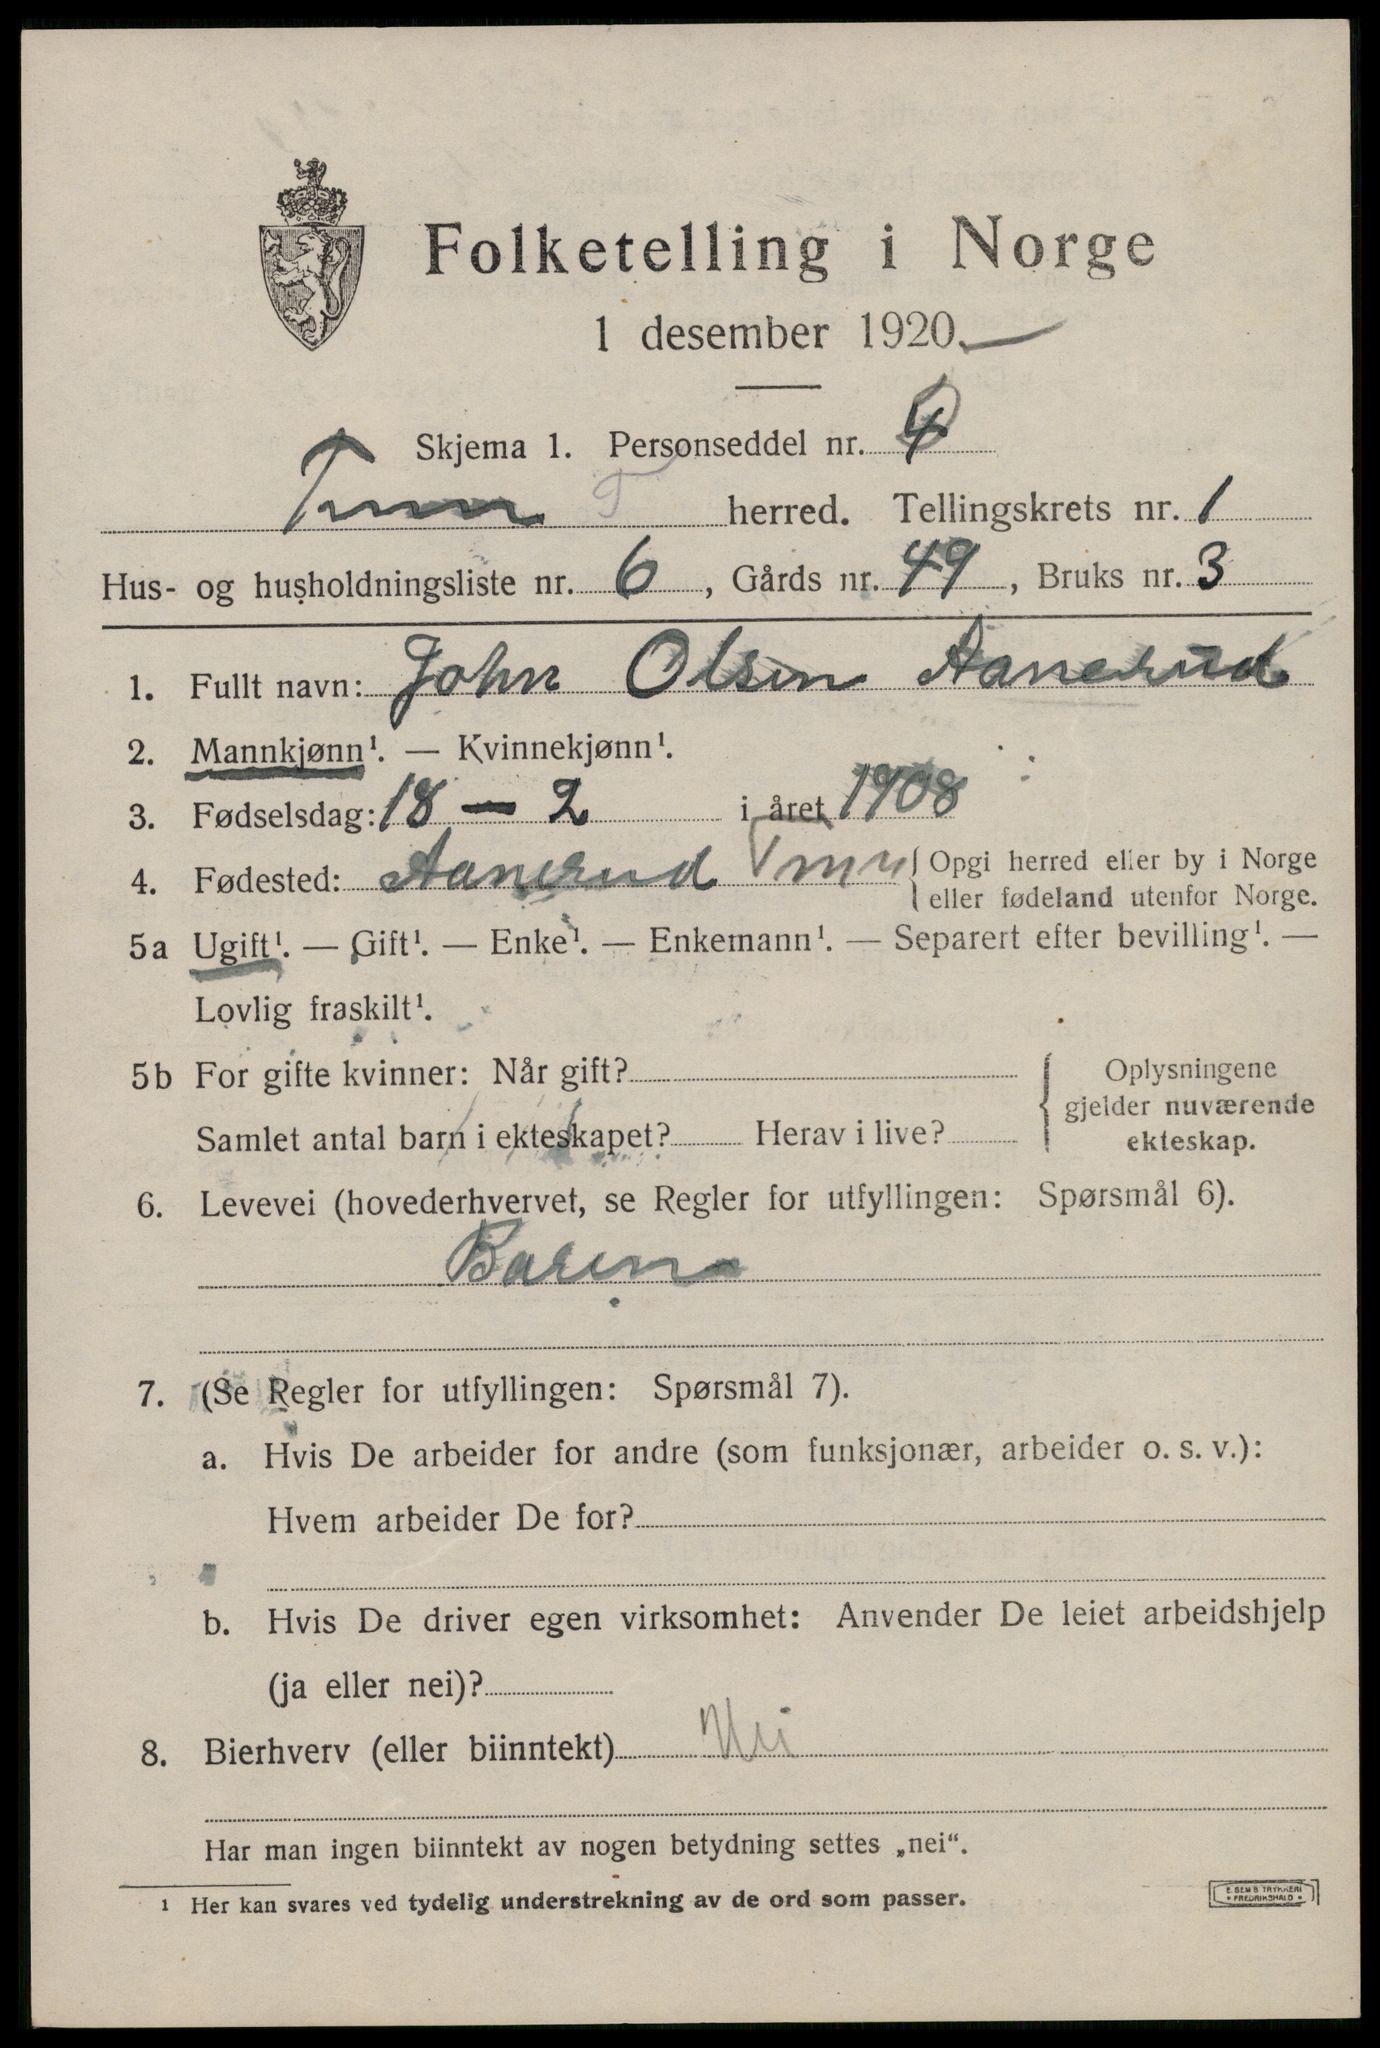 Folketelling i Norge
1 desember 1920.
Skjema 1. Personseddel nr. 4
herred. Tellingskrets nr. 1
Hus- og husholdningsliste nr. 6, Gårds nr. 49, Bruks nr. 3
1. Fullt navn: John Olsen Aanerud
2. Mannkjønn¹. — Kvinnekjønn¹.
3. Fødselsdag: 18 – 2 i året 1908
4. Fødested: Aanerud { Opgi herred eller by i Norge
{ eller fødeland utenfor Norge.
5a Ugift¹. — Gift¹. — Enke¹. — Enkemann¹. — Separert efter bevilling¹. —
Lovlig fraskilt¹.
5b For gifte kvinner: Når gift?
Samlet antal barn i ekteskapet? Herav i live?
{ Oplysningene
gjelder nuværende
ekteskap.
6. Levevei (hovederhvervet, se Regler for utfyllingen: Spørsmål 6).
7. (Se Regler for utfyllingen: Spørsmål 7).
a. Hvis De arbeider for andre (som funksjonær, arbeider o. s. v.):
Hvem arbeider De for?
b. Hvis De driver egen virksomhet: Anvender De leiet arbeidshjelp
(ja eller nei)?
8. Bierhverv (eller biinntekt) Nei
Har man ingen biinntekt av nogen betydning settes „nei“.
1 Her kan svares ved tydelig understrekning av de ord som passer.
E. SEM S TRYKKERI
• FREDRIKSHALD •